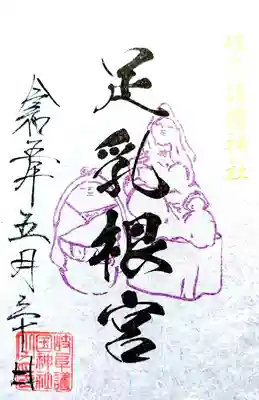 岐阜護國神社
足乳根宮
令和五年五月 日
岐阜護
国神社